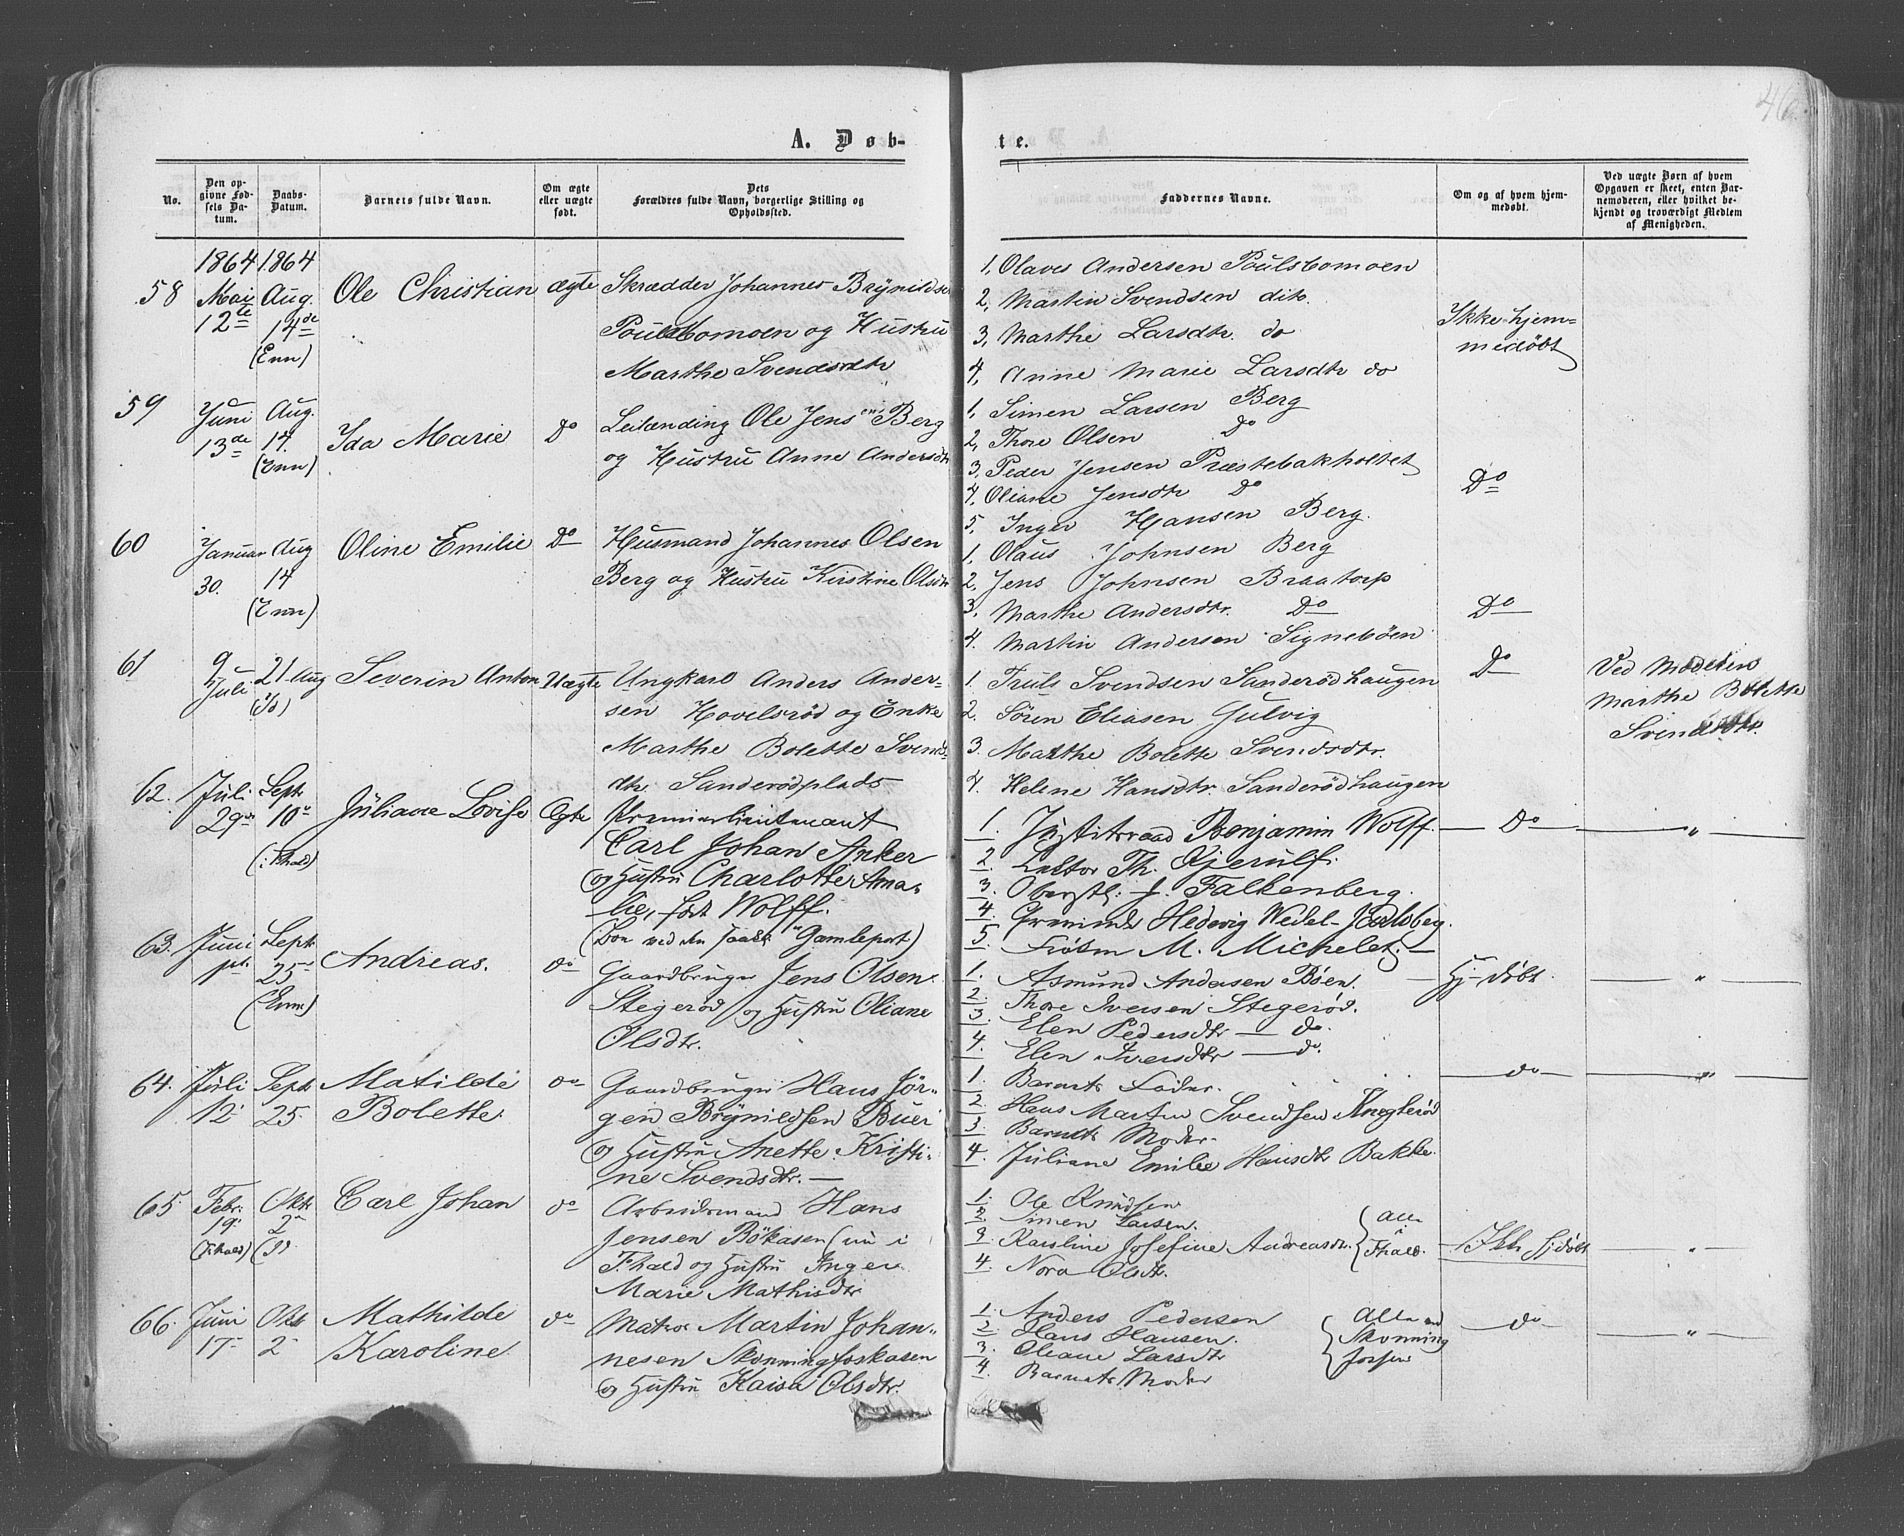 46.
A. Døb-
te.
No.
Den op-
givne Fød-
sels Da-
tum.
Daabs-
Datum.
Barnets fulde Navn.
Om ægte
eller uægte
født.
Dets
Forældres fulde Navn, borgerlige Stilling og
Opholdssted.
Faddernes Navne.
Om og af hvem hjem-
medøbt.
Ved uægte Børn af hvem
Opgaven er skeet, enten Bar-
nemoderen, eller hvilket be-
kjendt og troværdigt Medlem
af Menigheden.
1864 1864
58
Mai
12te
Aug.
14de
(Enn)
Ole Christian
ægte
Skrædder Johannes Brynilds
Poulsbomoen og Hustru
Marthe Svendsdtr
1, Olaves Andersen Poulsbomoen
2, Martin Svendsen dito.
3, Marthe Larsdtr. do
4, Anne Marie Larsdtr do
Ikke hjem=
medøbt
59
Juni
13de
Aug.
14.
(Enn)
Ida Marie
Do
Leilænding Ole Jensen Berg
og Hustru Anne Andersdtr
1, Simen Larsen Berg
2, Thore Olsen Do
3, Peder Jensen Præstebakholtet
4, Oliane Jensdtr Do
5, Inger Hansen Berg.
Do
60
Januar
30.
Aug
14
(Enn)
Oline Emilie
Do
Husmand Johannes Olsen
Berg og Hustru Kirstine Olsdtr
1, Olaus Johnsen Berg
2, Jens Johnsen Braatorp
3, Marthe Andersdtr. Do
4. Martin Andersen Signebøen
Do
61
9
Juli
21 Aug
(Id)
Severin Anton
Uægte
Ungkarl Anders Ander-
sen Hovelsrød og Enke
Marthe Bolette Svends
dtr. Sanderødplads
1. Truls Svendsen Sanderødhaugen
2. Søren Eliasen Gulvig
3. Marthe Bolette Svendsdtr.
4. Helene Hansdtr. Sanderødhaugen
Do
Ved Moderen
Marthe Bolette
Svendsdtr.
62.
Juli
29de
Septr
10de
(i Fhald)
Juliane Lovise
Ægte
Premierlieutenant
Carl Johan Anker
og Hustru Charlotte Ama-
lie, født Wolff.
(Boe ved den saak. "Gamleport)
1. Justitsraad Benjamin Wolff.
2. Lektor Th. Kjerulf.
3. Oberstl. J. Falkenberg.
4. Hedevig Wedel-Jarlsberg.
5. Frøken M. Michelet. —
— Do —
"
63.
Juni
Septr
25de
(Enn)
Andreas.
do
Gaardbruger Jens Olsen
Stegerød og Hustru Oliane
Olsdtr.
1. Asmund Andersen Bøen.
2. Thore Iversen Stegerød.
3. Elen Pedersdtr — do.
4. Elen Iversdtr — do.
Hj-døbt.
"
64.
Juli
12
Septr
25.
Matilde
Bolette.
do
Gaardbruger Hans Jør-
gen Brynildsen Buer
og Hustru Anette Kristi-
ne Svendsdtr. —
1. Barnets Fader.
2. Hans Martin Svendsen
3. Barnets Moder.
4. Juliane Emilie Hansdtr Bakke.
— do —
"
65.
Febr.
19de
(Fhald)
Oktr
2den
(Id)
Carl Johan
do
Arbeidsmand Hans
Jensen Bökasen (nu i
Fhald og Hustru Inger
Marie Mathisdtr
1. Ole Knudsen
2. Simen Larsen.
3. Karoline Josefine Andreasdtr.
4. Nora Olsdtr.
Alle
i
Fhald.
Ikke Hjdøbt
"
66.
Juni
17.
Oktr
2
Mathilde
Karoline.
do
Matros Martin Johan-
nesen Skonningfoskasen
og Hustru Kaisa Olsdtr.
1. Anders Pedersen
2. Hans Hansen.
3. Oliane Larsdtr
4. Barnets Moder
Alle ved
Skonning
— do —
"